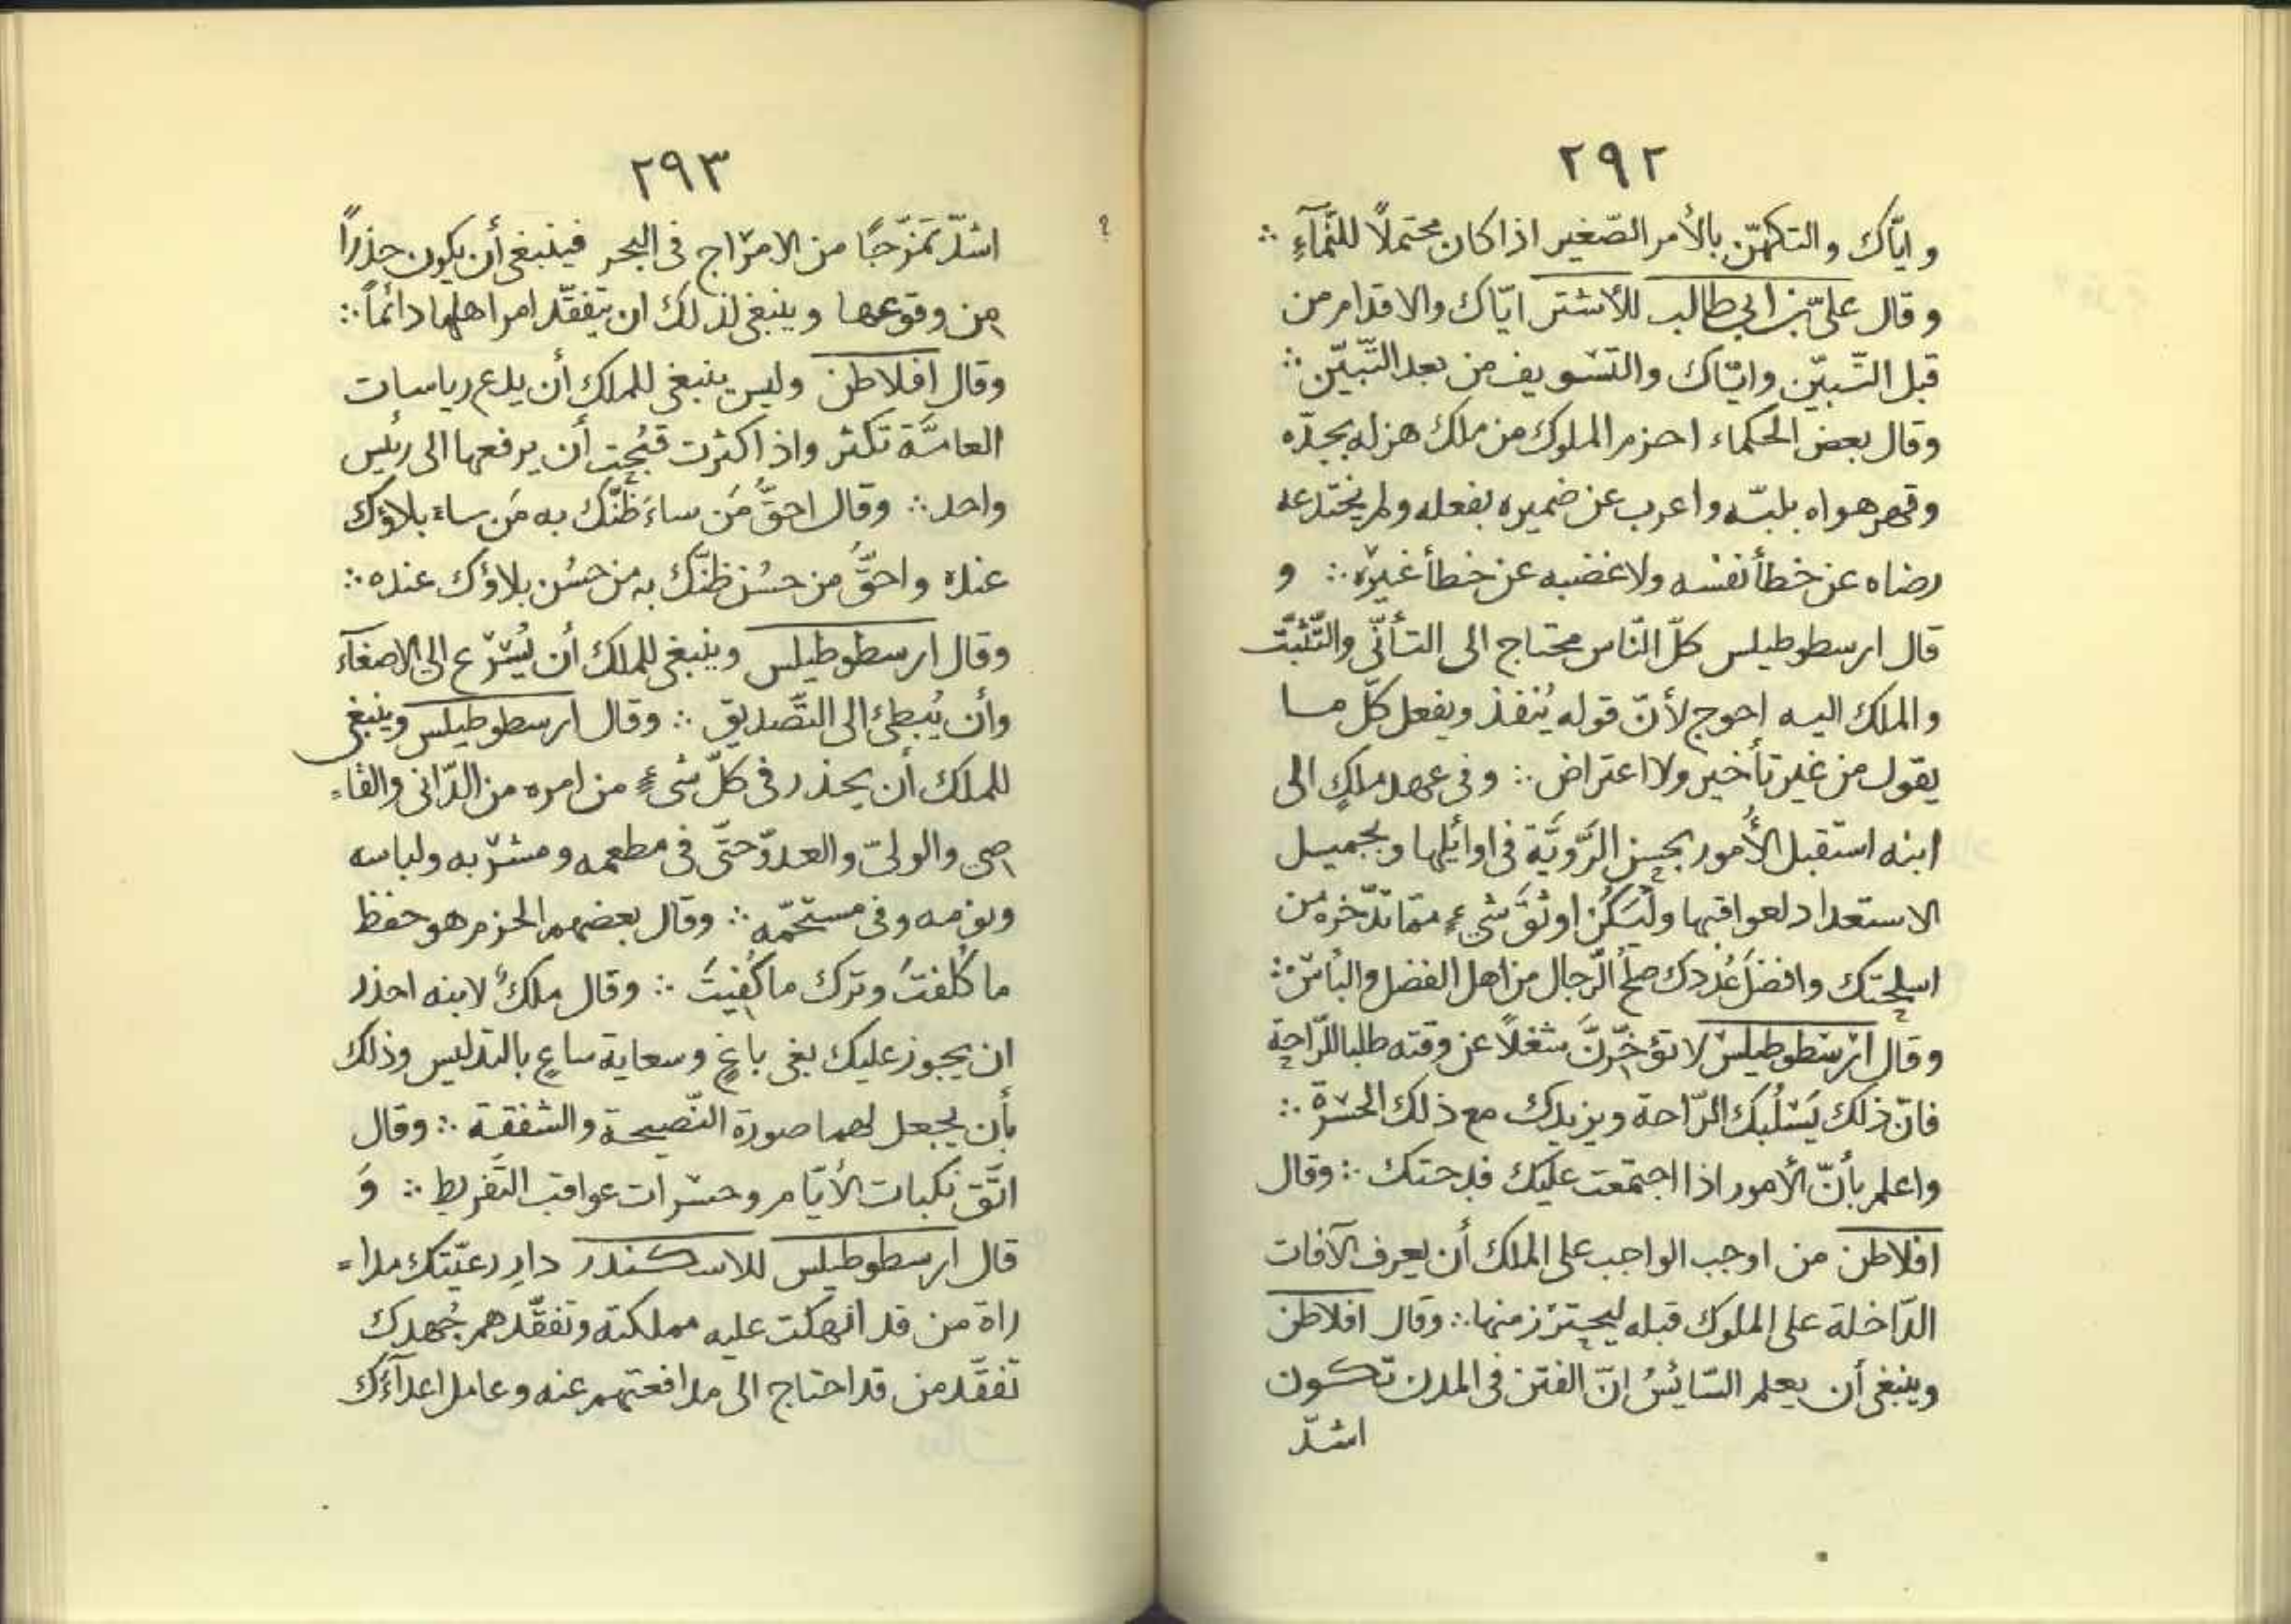 ٢٩٢
و ايّاك والتكهّن بالأمر الصّغير اذا كان محتملاً للنّمآءِ ∴
وقال علىّ بن ابى طالب للأشتر ايّاك والاقدام من
قبل التّبيّن وايّاك والتّسويف من بعد التّبيّن ∴
وقال بعض الحكماء احزم الملوك من ملك هزله بجدّه
وقهر هواه بلبّه واعرب عن ضميره بفعله ولم يختدعه
رضاه عن خطأ نفسه ولا غضبه عن خطأ غيره ∴ و
قال ارسطوطيلس كلّ النّاس محتاج الى التأنّى والتّثبّت
والملك اليه احوج لأنّ قوله يُنفذ ويفعل كلّ ما
يقول من غير تأخير ولا اعتراض ∴ وفى عهد ملكٍ الى
ابنه استقبل الأُمور بحسن الرَّوِيَّة فى اوائلها وبجميل
الاستعداد لعواقبها ولْيَكُن اوثقَ شىءٍ ممّا تدّخره من
اسلحتك وافضلَ عُددك صلحُ الرّجال من اهل الفضل والبأس ∴
وقال ارسطوطيلس لا تؤخّرنَّ شغلاً عن وقته طلبا للرّاحة
فانّ ذلك يَسْلُبك الرّاحة ويزيدك مع ذلك الحسرة ∴
واعلم بأنّ الأمور اذا اجتمعت عليك فدحتك ∴ وقال
افلاطن من اوجب الواجب على الملك أن يعرف الآفات
الدّاخلة على الملوك قبله ليحترز منها ∴ وقال افلاطن
وينبغى أن يعلم السّائسُ انّ الفتن فى المدن تكون
اشدّ
٢٩٣
؟
اشدّ تَمَزّجًا من الامزاج فى البحر فينبغى أن يكون حذراً
من وقوعها وينبغى لذلك ان يتفقّد امر اهلها دائماً ∴
وقال افلاطن وليس ينبغى للملك أن يدع رياسات
العامّة تكثر واذا كثرت قبُحت أن يرفعها الى رئيس
واحد ∴ وقال احقُّ مَن ساءَ ظنّك به مَن ساءَ بلاؤك
عنده واحقُّ من حسُن ظنّك به من حسُن بلاؤك عنده ∴
وقال ارسطوطيلس وينبغى للملك أن يُسْرع الى الاصغآء
وأن يُبطئ الى التّصديق ∴ وقال ارسطوطيلس وينبغى
للملك أن يحذر فى كلّ شىءٍ من امره من الدّانى والقا-
صى والولىّ والعدوّ حتّى فى مطعمه ومشربه ولباسه
ونومه وفى مستحمّه ∴ وقال بعضهم الحزم هو حفظ
ما كُلفتَ وترك ما كُفيتَ ∴ وقال ملكٌ لابنه احذر
ان يجوز عليك بغى باغٍ وسعاية ساعٍ بالتدليس وذلك
بأن يجعل لهما صورة النّصيحة والشفقة ∴ وقال
اتَّق نكبات الأيّام وحسرات عواقب التّفريط ∴ وَ
قال ارسطوطيلس للاسكندر دارِ رعيّتك مدا=
راة من قد انهكت عليه مملكته وتفقّدهم جُهدك
تفقّد من قد احتاج الى مدافعتهم عنه وعامل اعدآءك